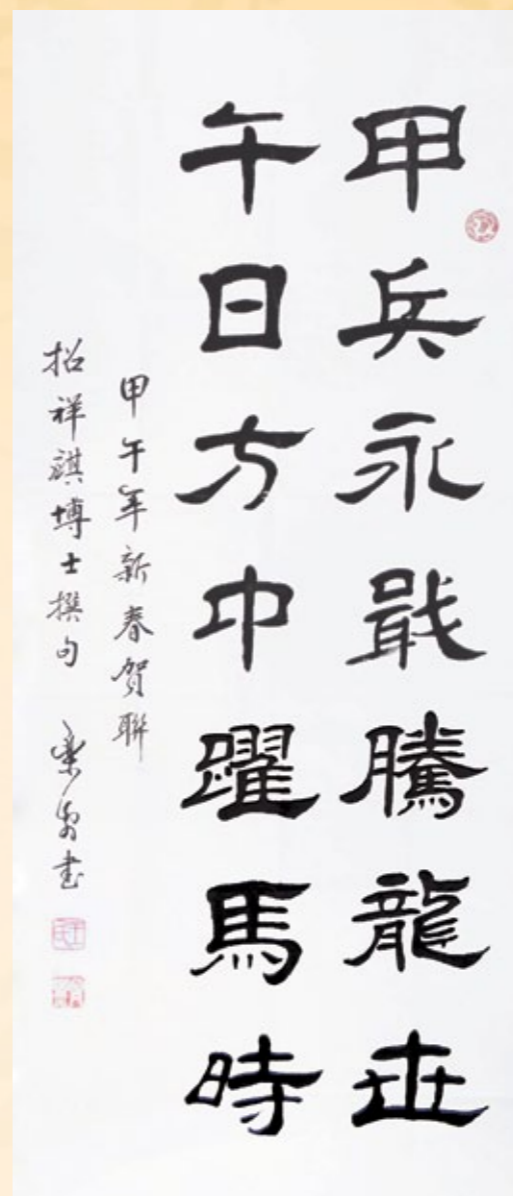 甲兵永戢騰龍世
午日方中躍馬時
甲午年新春賀聯
招祥麒博士撰句 書